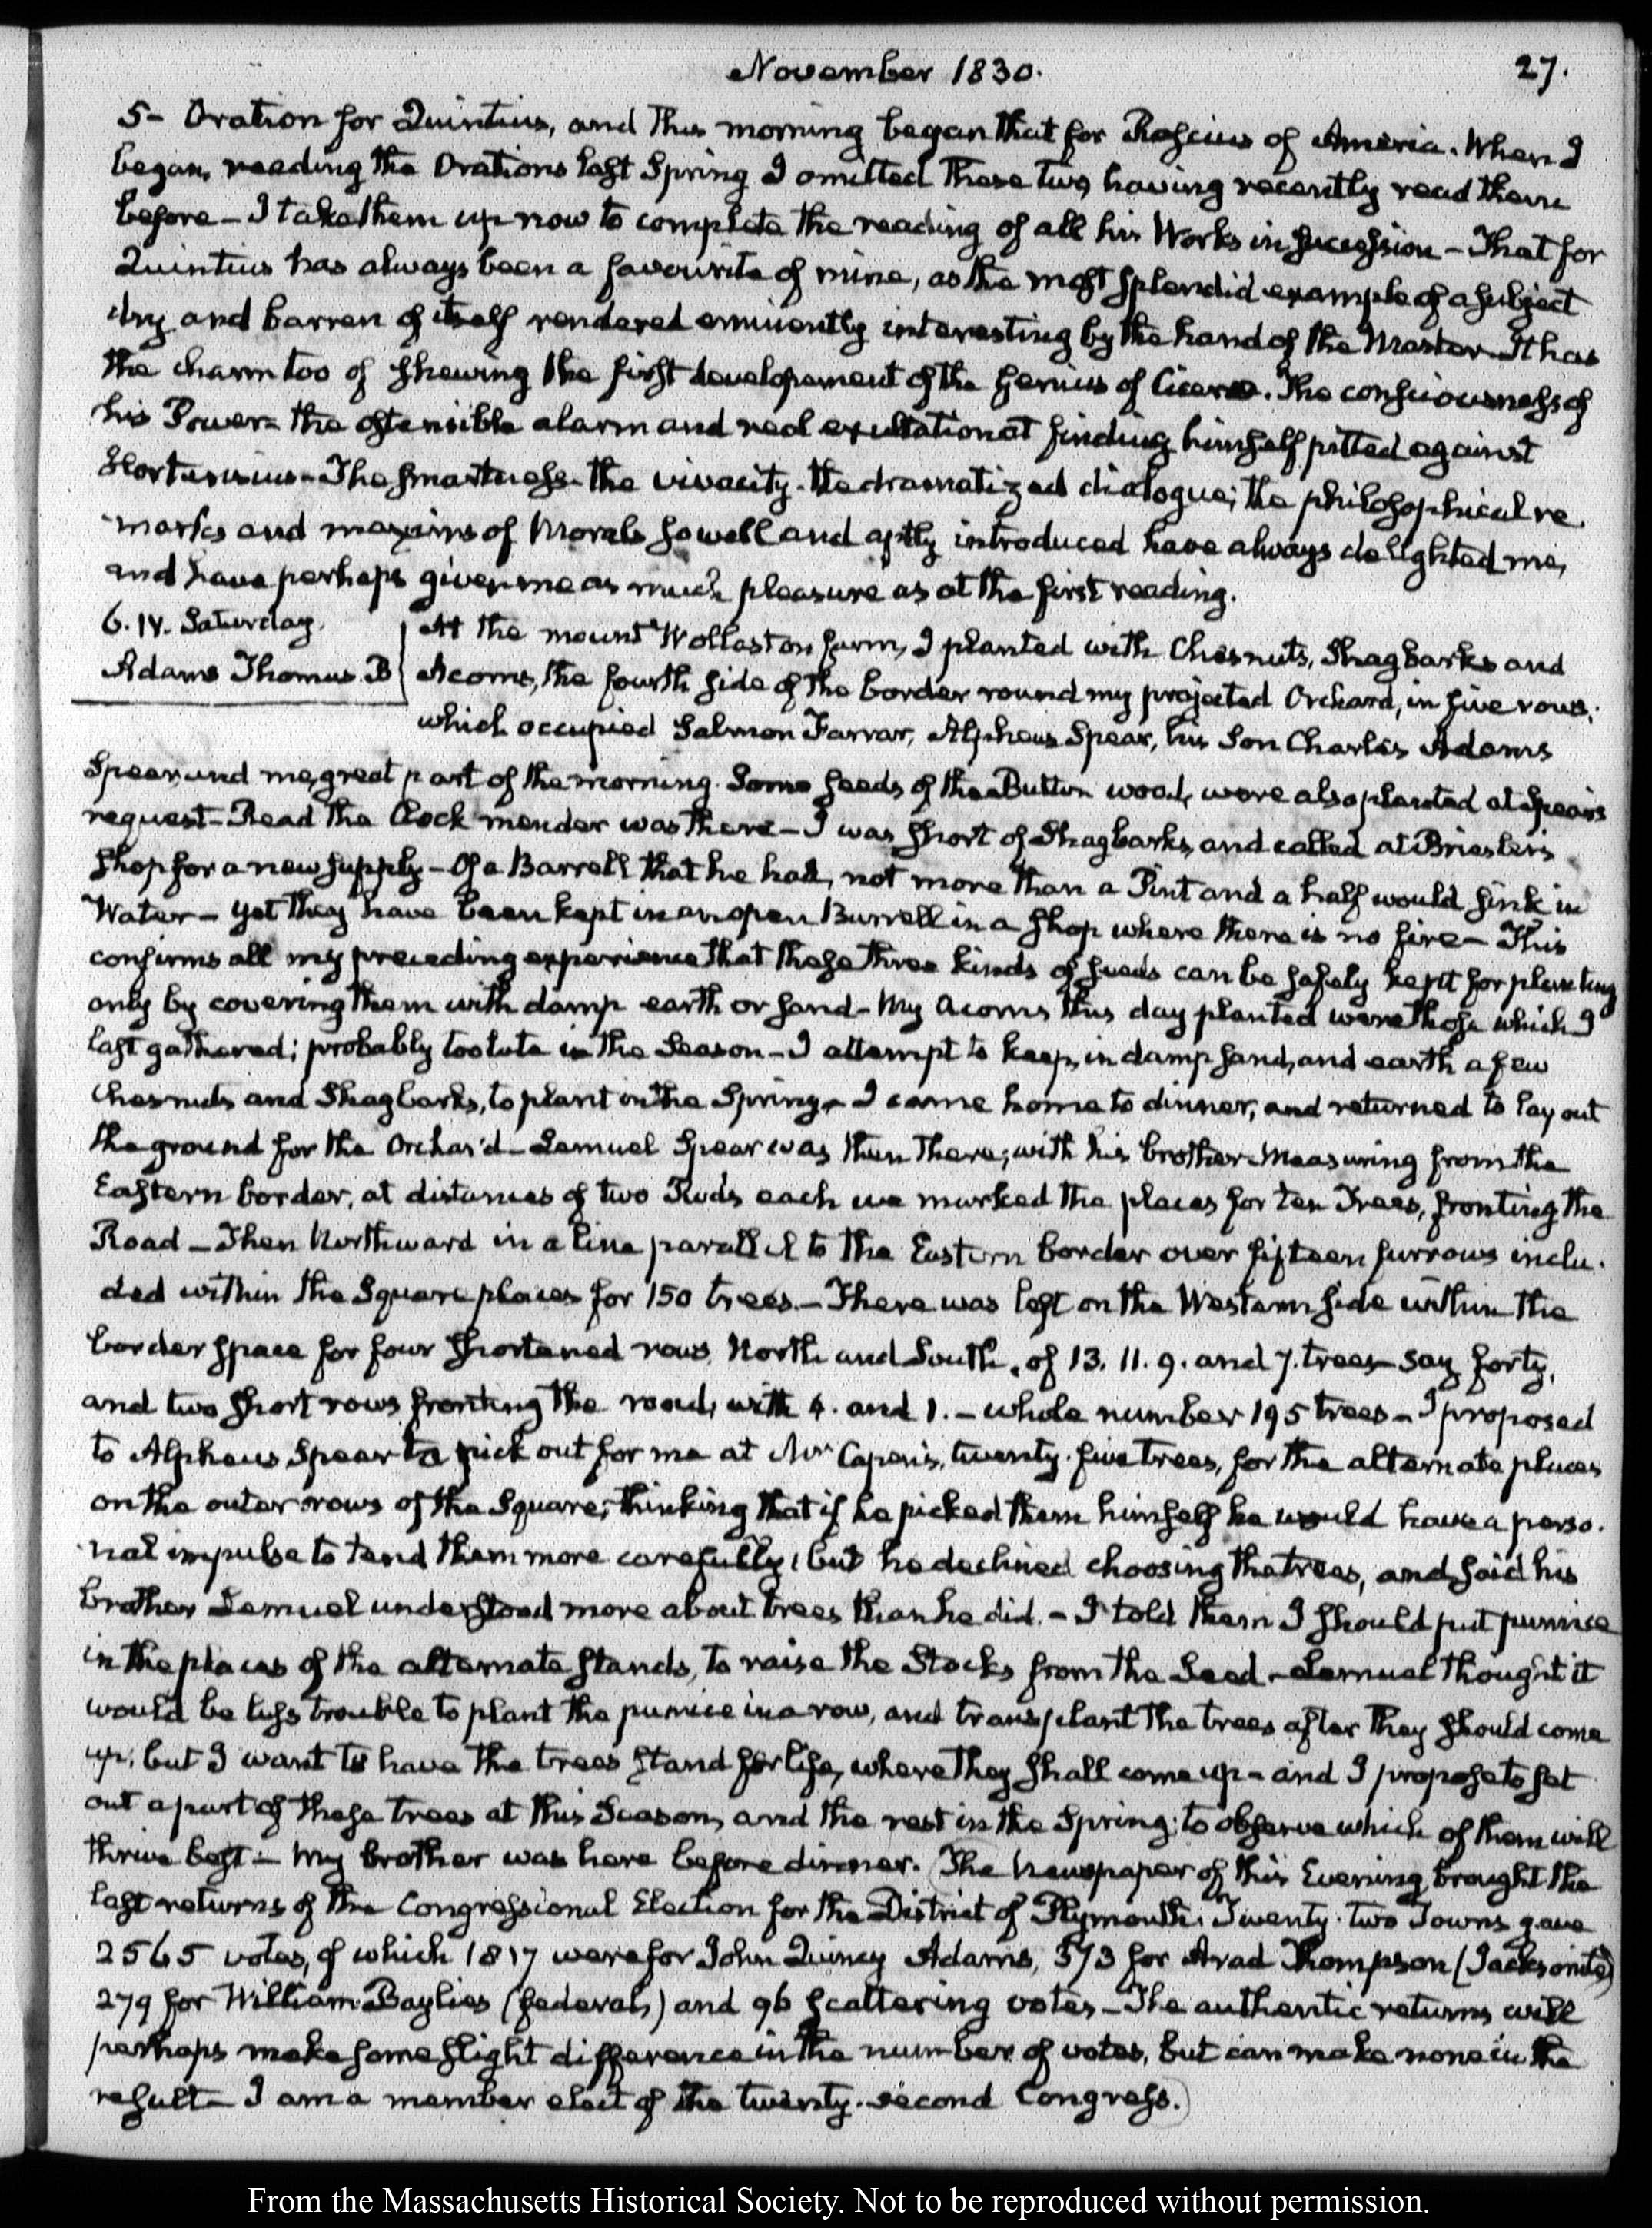 November 1830.
27.
5- Oration for Quintius, and this morning began that for Roscius of Ameria. When I
began, reading the Orations last Spring I omitted these two, having recently read them
before – I take them up now to complete the reading of all his Works in succession – That for
Quintius has always been a favourite of mine, as the most splendid example of a subject
dry and barren of itself rendered eminently interesting by the hand of the Master. It has
the charm too of shewing the first developement of the Genius of Cicero. The consciousness of
his Power – the ostensible alarm and real exultation at finding himself pitted against
Hortensius – The smartness – the vivacity – the dramatized dialogue; the philosophical re
marks and maxims of Morals so well and aptly introduced have always delighted me,
and have perhaps given me as much pleasure as at the first reading.
6. IV. Saturday.
Adams Thomas. B
At the mount Wollaston farm, I planted with Chesnuts, Shagbarks and
Acorns, the fourth side of the border round my projected Orchard, in five rows;
which occupied Salmon Farrar, Alpheus Spear, his Son Charles Adams
Spear, and me, great part of the morning. Some seeds of the Button wood, were also planted at Spear's
request – Read the Clock mender was there – I was short of Shagbarks, and called at Briesler's
shop for a new supply – Of a Barrell that he had, not more than a Pint and a half would sink in
Water – yet they have been kept in an open Barrell in a shop where there is no fire – This
confirms all my preceding experience that these three kinds of seeds can be safely kept for planting
only by covering them with damp earth or sand – My Acorns this day planted were those which I
last gathered; probably too late in the Season – I attempt to keep, in damp sand, and earth a few
Chesnuts and Shagbarks, to plant in the Spring – I came home to dinner, and returned to lay out
the ground for the Orchard – Lemuel Spear was then there, with his brother – Measuring from the
Eastern border, at distances of two Rods each we marked the places for ten Trees, fronting the
Road – Then Northward in a line parallel to the Eastern border over fifteen furrows inclu-
ded within the Square places for 150 trees. – There was left on the Western side within the
border space for four shortened rows, North and South, of 13. 11. 9. and 7. trees – say forty,
and two short rows fronting the road, with 4. and 1. – whole number 195 trees – I proposed
to Alpheus Spear to pick out for me at Mr Capen's, twenty-five trees, for the alternate places
on the outer rows of the Square; thinking that if he picked them himself he would have a perso-
nal impulse to tend them more carefully; but he declined choosing the trees, and said his
brother Lemuel understood more about trees than he did. – I told them I should put pumice
in the places of the alternate stands, to raise the Stocks from the Seed – Lemuel thought it
would be less trouble to plant the pumice in a row, and transplant the trees after they should come
up; but I want to have the trees stand for life, where they shall come up – and I propose to set
out a part of these trees at this Season, and the rest in the Spring; to observe which of them will
thrive best – My brother was here before dinner. (The Newspaper of this Evening brought the
last returns of the Congressional Election for the District of Plymouth. Twenty-two Towns gave
2565 votes, of which 1817 were for John Quincy Adams, 373 for Arad Thompson (Jacksonite)
279 for William Baylies (federal,) and 96 scattering votes – The authentic returns will
perhaps make some slight difference in the number of votes, but can make none in the
result – I am a member elect of the twenty-second Congress.)
From the Massachusetts Historical Society. Not to be reproduced without permission.